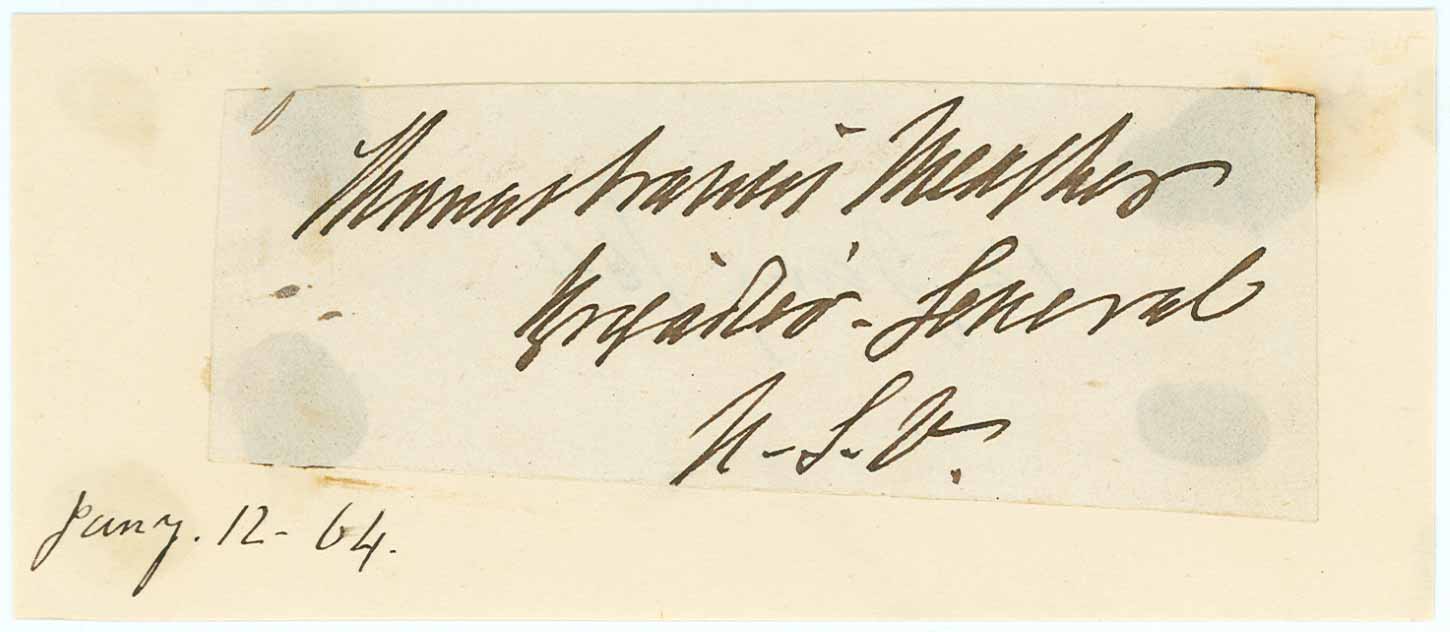 Thomas Francis Meagher
Brigadier-General
U-S-V.
Jany. 12-64.